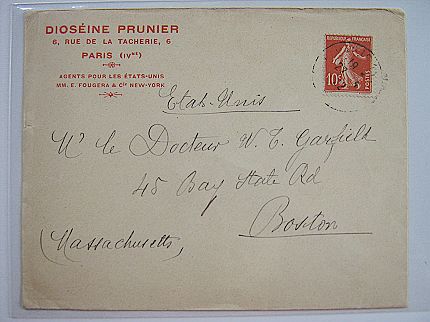 DIOSÉINE PRUNIER
6, RUE DE LA TACHERIE, 6
PARIS (IVME)
AGENTS POUR LES ÉTATS-UNIS
MM. E. FOUGERA & Cie NEW-YORK
REPUBLIQUE FRANÇAISE
10c
POSTES
Etats-Unis
Mr le Docteur W. T. Garfield
45 Bay State Rd
Boston
(Massachusetts)